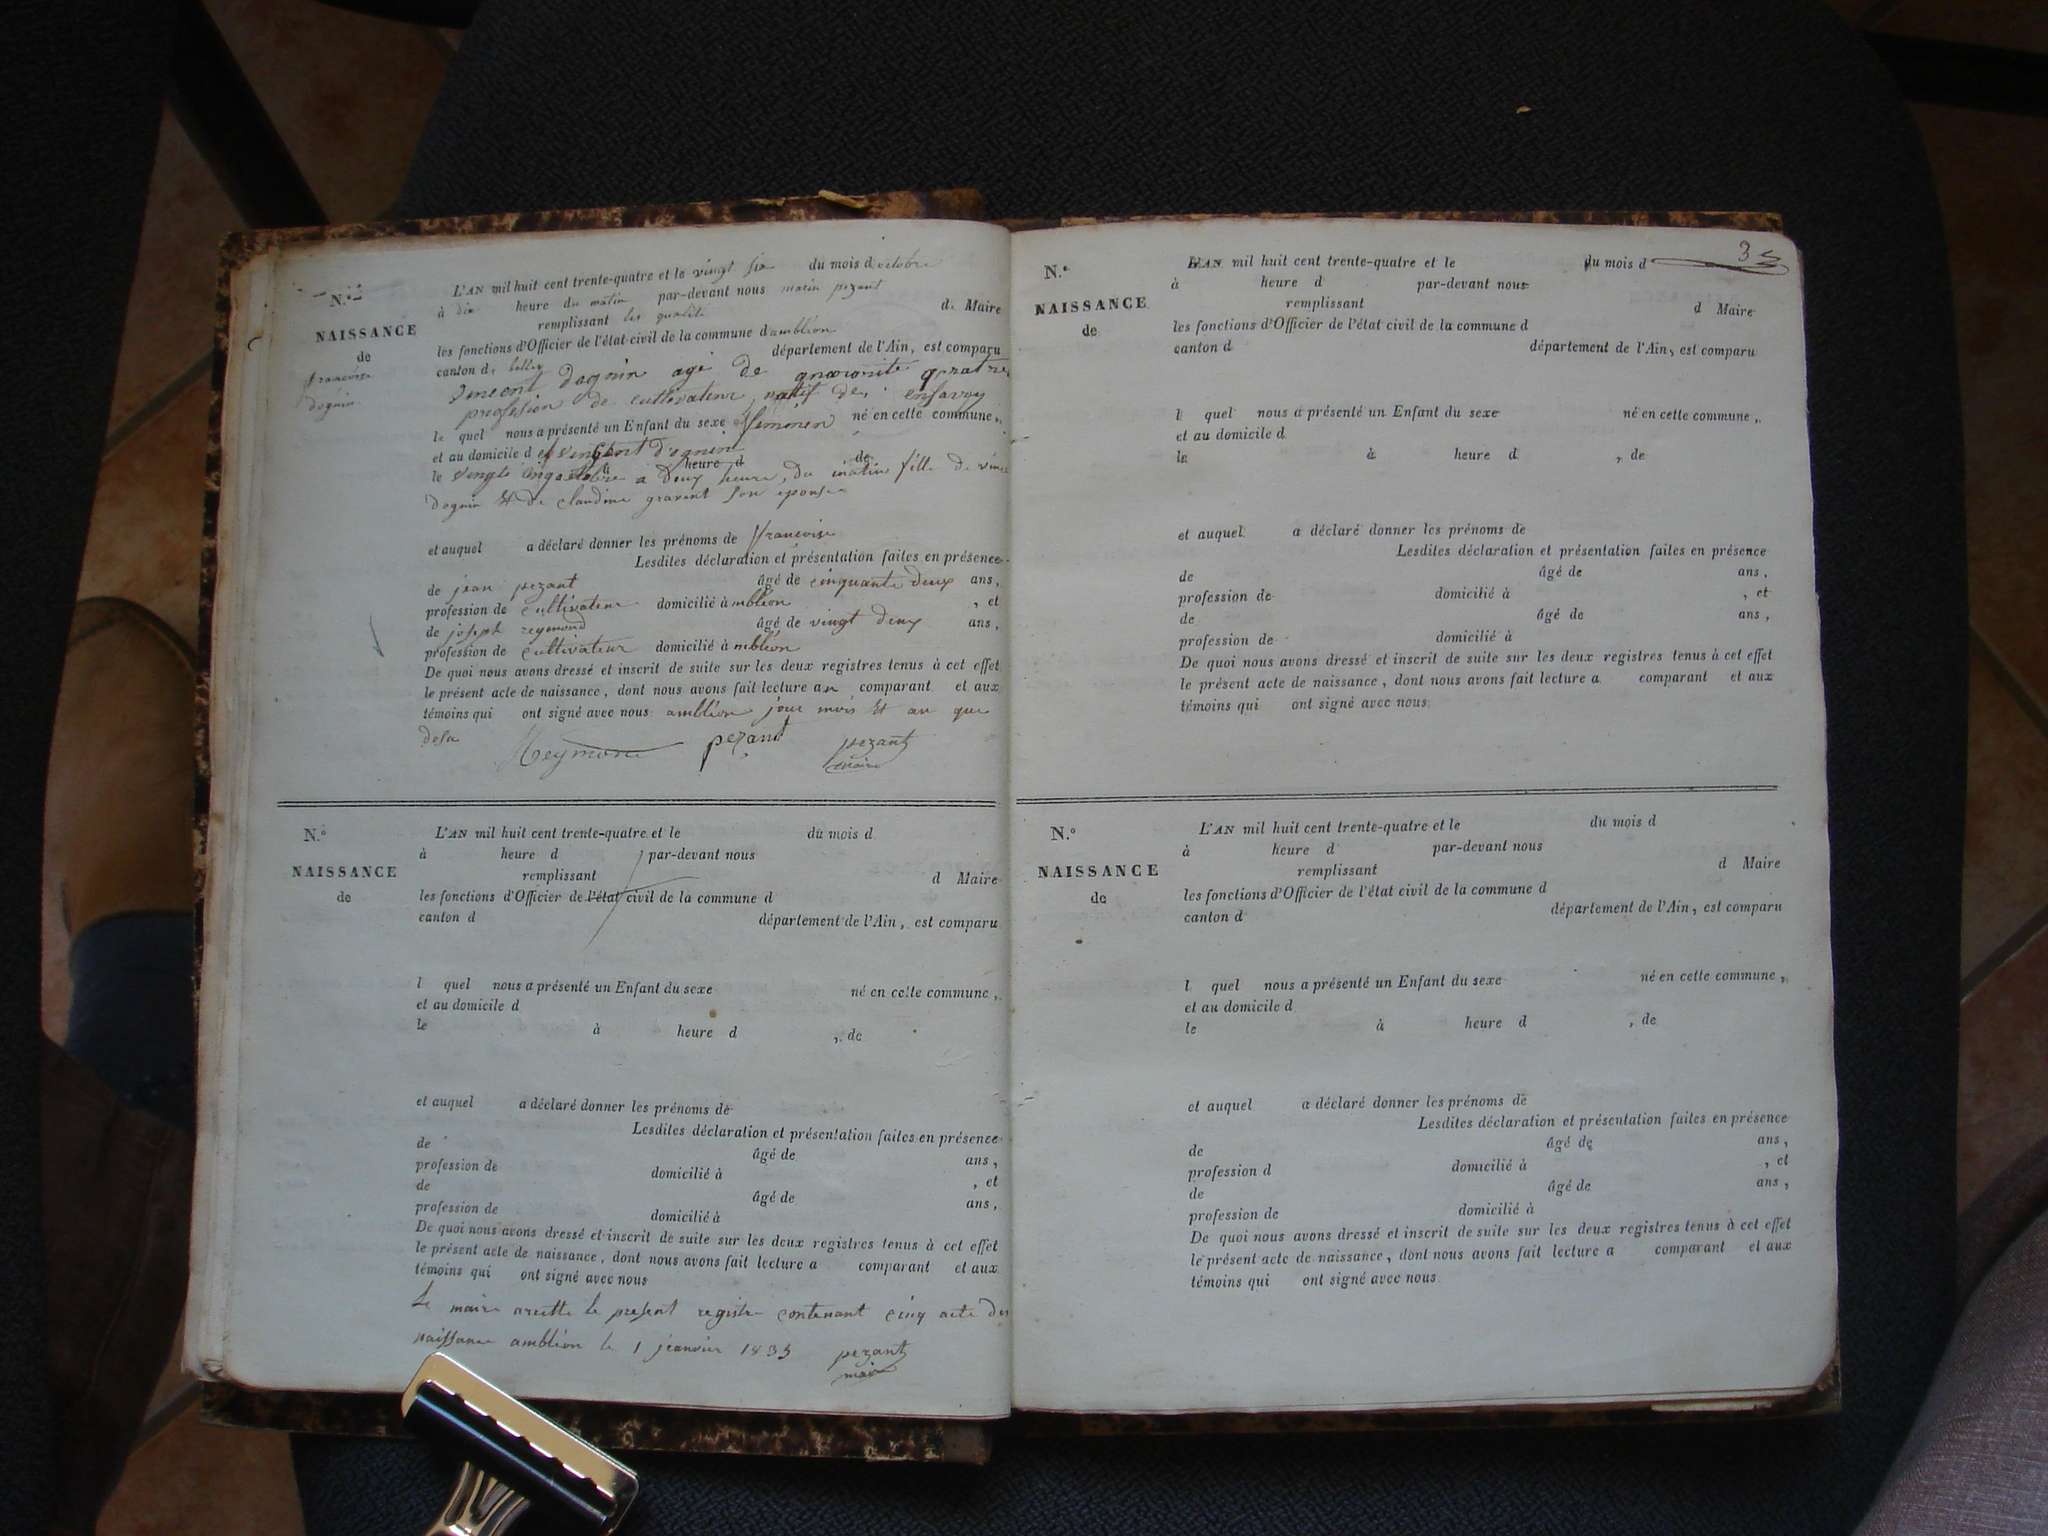 N.º
NAISSANCE
de
francoise
doguin
L'AN mil huit cent trente-quatre et le vingt six du mois d octobre
à dix heure du matin par-devant nous marin pezant
remplissant les qualité d. Maire
les fonctions d'Officier de l'état civil de la commune d ambléon
canton de belley département de l'Ain, est comparu
vincent doguin agé de quarante quatre
profession de cultivateur natif de ensavoy
le quel nous a présenté un Enfant du sexe feminin né en cette commune,
et au domicile d vincent doguin
le vingt cinq octobre à deux heure, du matin fille de vince
doguin et de claudine gravent son epouse
et auquel a déclaré donner les prénoms de francoise
Lesdites déclaration et présentation faites en présence
de jean pezant âgé de cinquante deux ans,
profession de cultivateur domicilié à mbléon , et
de joseph reymond âgé de vingt deux ans,
profession de cultivateur domicilié à mbléon
De quoi nous avons dressé et inscrit de suite sur les deux registres tenus à cet effet
le présent acte de naissance, dont nous avons fait lecture au comparant et aux
témoins qui ont signé avec nous ambléon jour mois et an que
desu
Reymond pezant pezant
maire
N.º
NAISSANCE
de
L'AN mil huit cent trente-quatre et le du mois d
à heure d par-devant nous
remplissant d Maire
les fonctions d'Officier de l'état civil de la commune d
canton d département de l'Ain, est comparu
l quel nous a présenté un Enfant du sexe né en cette commune,
et au domicile d
le à heure d , de
et auquel a déclaré donner les prénoms de
Lesdites déclaration et présentation faites en présence
de âgé de ans,
profession de domicilié à , et
de âgé de ans,
profession de domicilié à
De quoi nous avons dressé et inscrit de suite sur les deux registres tenus à cet effet
le présent acte de naissance, dont nous avons fait lecture a comparant et aux
témoins qui ont signé avec nous
le maire arrette le present registre contenant cinq acte de
naissance ambléon le 1 jeanvier 1835 pezant
maire
3
N.º
NAISSANCE
de
L'AN mil huit cent trente-quatre et le du mois d
à heure d par-devant nous
remplissant d Maire
les fonctions d'Officier de l'état civil de la commune d
canton d département de l'Ain, est comparu
l quel nous a présenté un Enfant du sexe né en cette commune,
et au domicile d
le à heure d , de
et auquel a déclaré donner les prénoms de
Lesdites déclaration et présentation faites en présence
de âgé de ans,
profession de domicilié à , et
de âgé de ans,
profession de domicilié à
De quoi nous avons dressé et inscrit de suite sur les deux registres tenus à cet effet
le présent acte de naissance, dont nous avons fait lecture a comparant et aux
témoins qui ont signé avec nous
N.º
NAISSANCE
de
L'AN mil huit cent trente-quatre et le du mois d
à heure d par-devant nous
remplissant d Maire
les fonctions d'Officier de l'état civil de la commune d
canton d département de l'Ain, est comparu
l quel nous a présenté un Enfant du sexe né en cette commune,
et au domicile d
le à heure d , de
et auquel a déclaré donner les prénoms de
Lesdites déclaration et présentation faites en présence
de âgé de ans,
profession d domicilié à , et
de âgé de ans,
profession de domicilié à
De quoi nous avons dressé et inscrit de suite sur les deux registres tenus à cet effet
le présent acte de naissance, dont nous avons fait lecture a comparant et aux
témoins qui ont signé avec nous